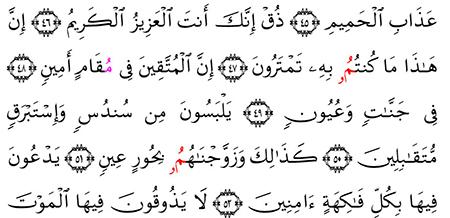 عَذَابِ الْحَمِيمِ ﴿٤٥﴾ ذُقْ إِنَّكَ أَنتَ الْعَزِيزُ الْكَرِيمُ ﴿٤٦﴾ إِنَّ
هَٰذَا مَا كُنتُمُۥ بِهِۦ تَمْتَرُونَ ﴿٤٧﴾ إِنَّ الْمُتَّقِينَ فِى مُقَامٍ أَمِينٍ ﴿٤٨﴾
فِى جَنَّٰتٍ وَعُيُونٍ ﴿٤٩﴾ يَلْبَسُونَ مِن سُندُسٍ وَإِسْتَبْرَقٍ
مُّتَقَٰبِلِينَ ﴿٥٠﴾ كَذَٰلِكَ وَزَوَّجْنَٰهُمُۥ بِحُورٍ عِينٍ ﴿٥١﴾ يَدْعُونَ
فِيهَا بِكُلِّ فَٰكِهَةٍ ءَامِنِينَ ﴿٥٢﴾ لَا يَذُوقُونَ فِيهَا الْمَوْتَ